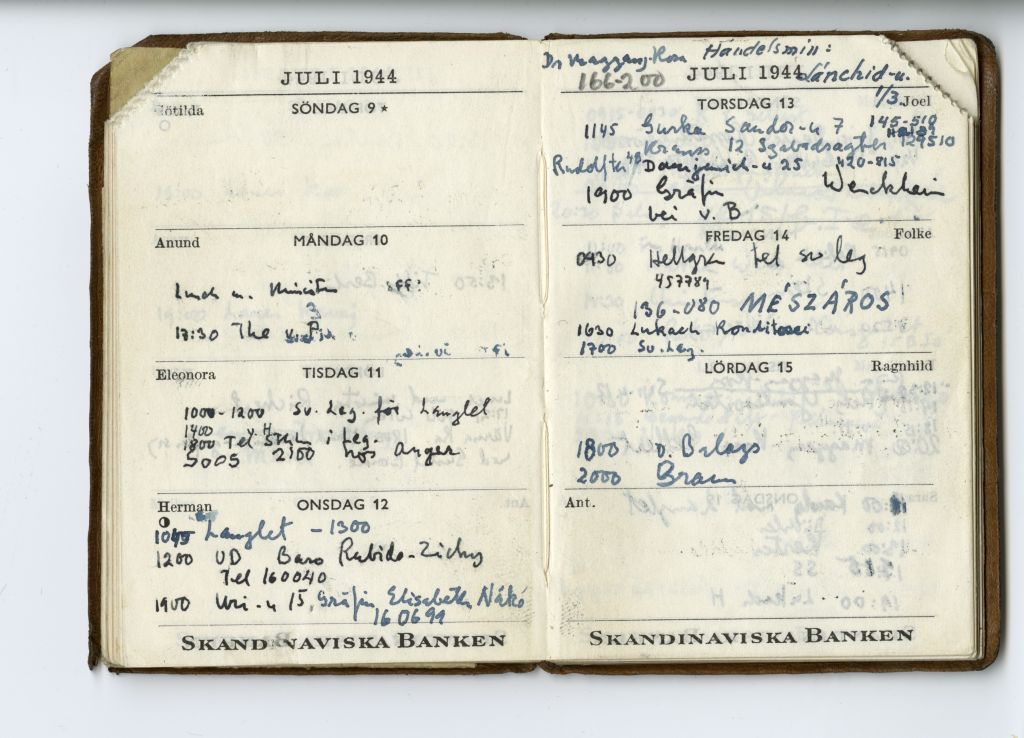 JULI 1944
SÖNDAG 9 *
MÅNDAG 10
Anund
Lunch m. Minister
17:30 The
Eleonora
TISDAG 11
1000-1200 Sv. Leg. för Langlet
1400
1800 Tel Sthlm i Leg.
2100 hos Anger
Herman
ONSDAG 12
1045 Langlet - 1300
1200 UD Baro Rubido-Zichy
Tel 160040
1900 Uri-u 15, Gräfin Elisabeth Nákó
160699
SKANDINAVISKA BANKEN
Handelsmin:
166-200
JULI 1944
Lánchid-u.
1/3.
TORSDAG 13
Joel
145-510
1145 Sandor-u 7
129510
12
u 25 420-815
1900 Gräfin Wenckheim
bei v. B
FREDAG 14
Folke
0930 Hellgren tel sv leg
457789
136-080 MÉSZÁROS
1630 Lukach Konditorei
1700 Sv. Leg.
LÖRDAG 15
Ragnhild
1800
2000
Ant.
SKANDINAVISKA BANKEN